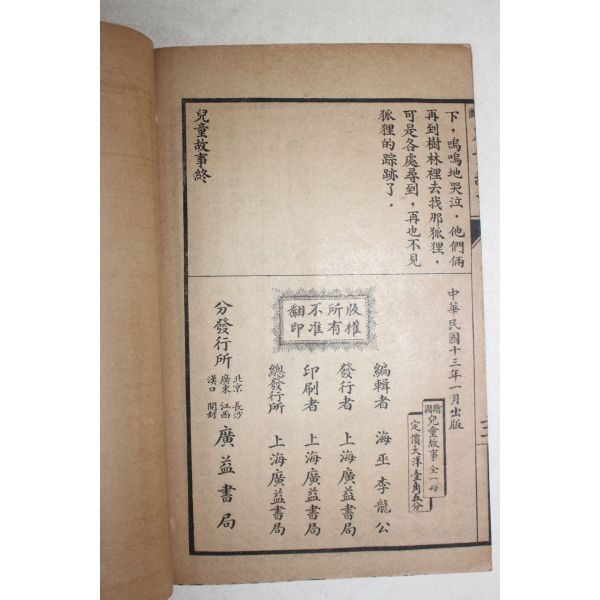 下，嗚嗚地哭泣．他們倆
再到樹林裡去找那狐狸，
可是各處尋到，再也不見
狐狸的踪跡了．
兒童故事終
中華民國十三年一月出版
繪圖兒童故事全一冊
定價大洋壹角五分
版權所有不准翻印
編輯者 海巫李龍公
發行者 上海廣益書局
印刷者 上海廣益書局
總發行所 上海廣益書局
分發行所 北京 廣東 漢口 長沙 江西 開封 廣益書局